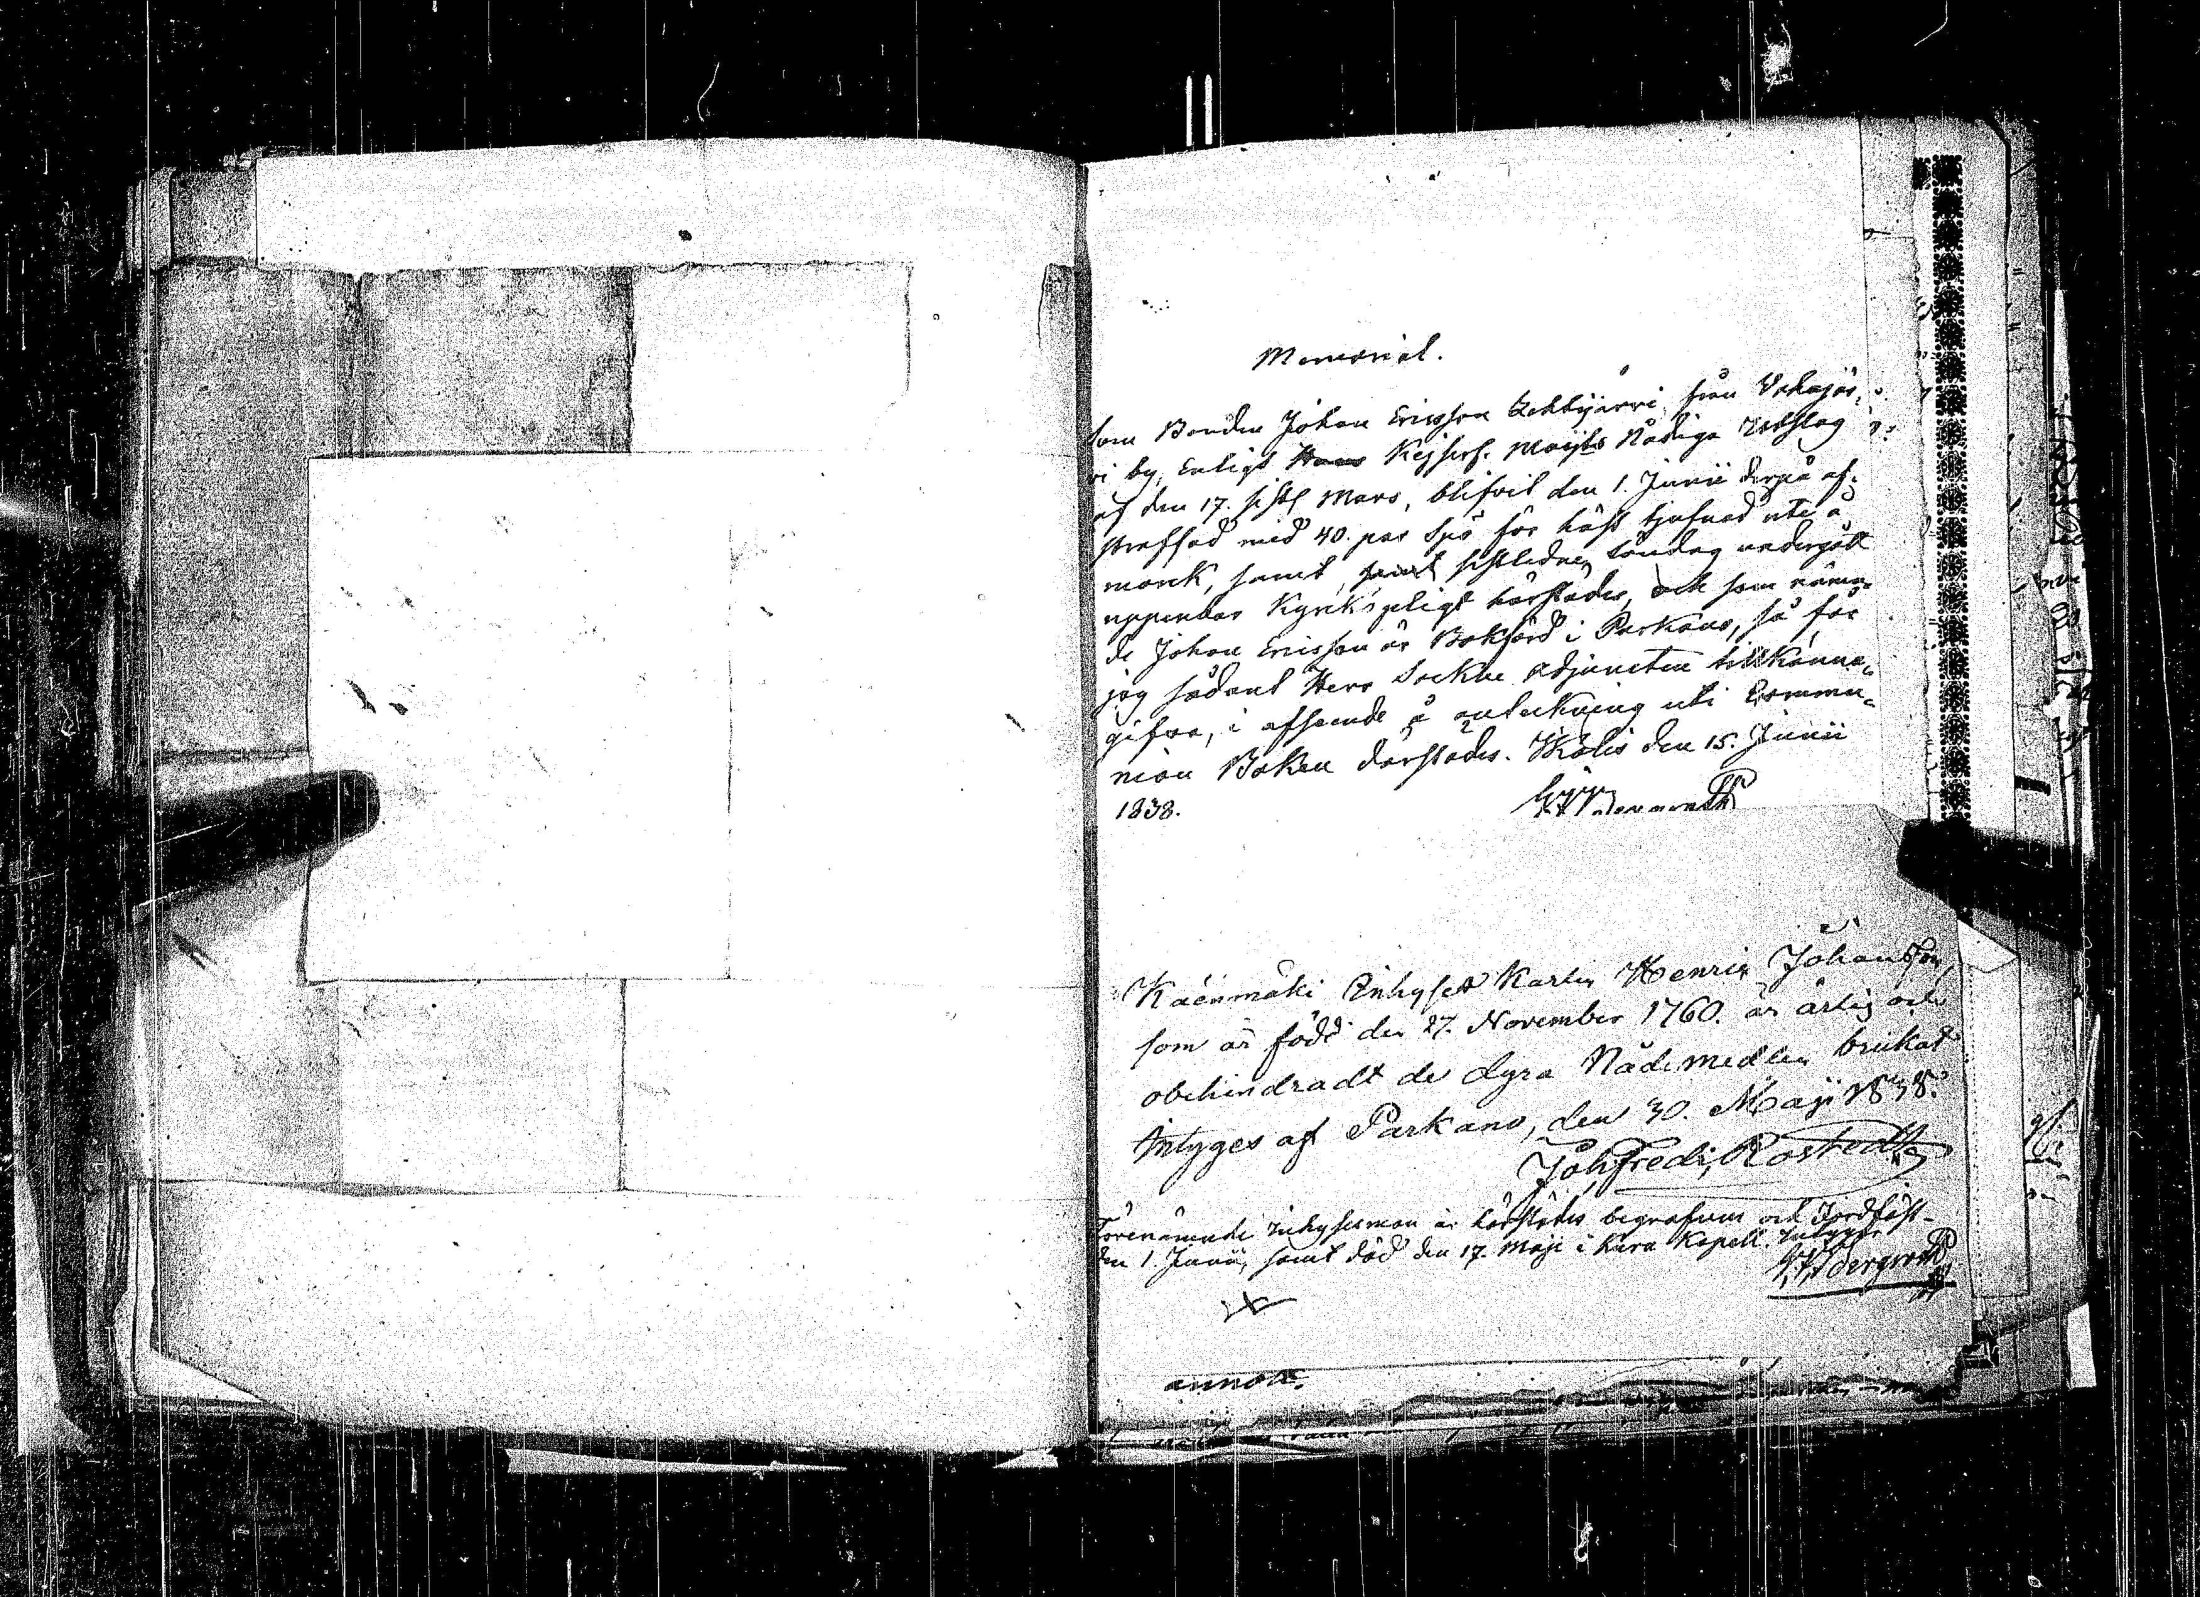 Memorial.
Som Bonden Johan Ericsson från Vahojär,
vi by, Enligt Hans Kejserl. Maijts Nådiga Utslag
af den 17. sistl Mars, blifvit den 1. Junii derpå af-
straffad med 40. par Spö för häst tjufnad ute å
mark, samt, sistledne Söndag undergått
uppenbar Kyrkspligt härstädes, och som nämn-
de Johan Ericsson är Bokförd i Parkano, så får
jag sådant Herr Sockne adjuncten tillkänna-
gifva, i afseende å anteckning uti Commu-
nion Boken därstädes. Ikalis den 15. Junii
1838.
Kaénmäki Inhyses Karlen Henric Johansson,
som är född den 27. November 1760. är ärlig och
obehindradt de dyra Nådemedlen brukat
intyges af Parkano, den 30. Maji 1838.
Joh. Fredr. Rostedt
Förenämnde Inhysesman är härstädes begrafven och Jordfäst
den 1. Junii, samt död den 17. Maji i Kuru Kapell. Intygar
annot.